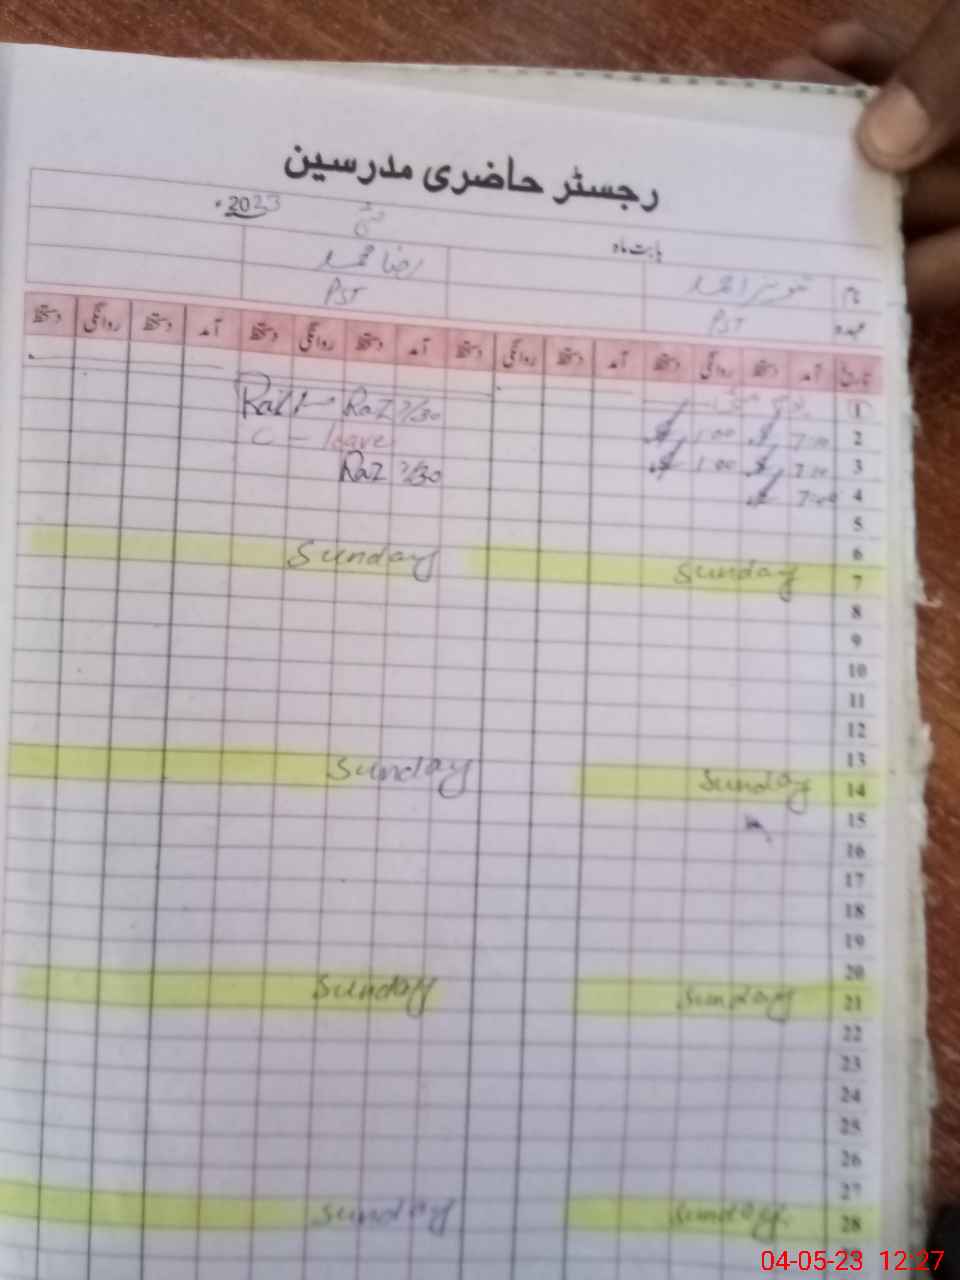 رجسٹر حاضری مدرسین
بابت ماہ 2023ء
نام رضا محمد
عہدہ PST PST
تاریخ آمد دستخط روانگی دستخط آمد دستخط روانگی دستخط آمد دستخط روانگی دستخط آمد دستخط روانگی دستخط
1 Raz 7/30
2 7:00 1:00 C - leave
3 1:00 Raz 7/30
4 7:00
5
6
7 Sunday Sunday
8
9
10
11
12
13
14 Sunday Sunday
15
16
17
18
19
20
21 Sunday Sunday
22
23
24
25
26
27
28 Sunday Sunday
04-05-23 12:27